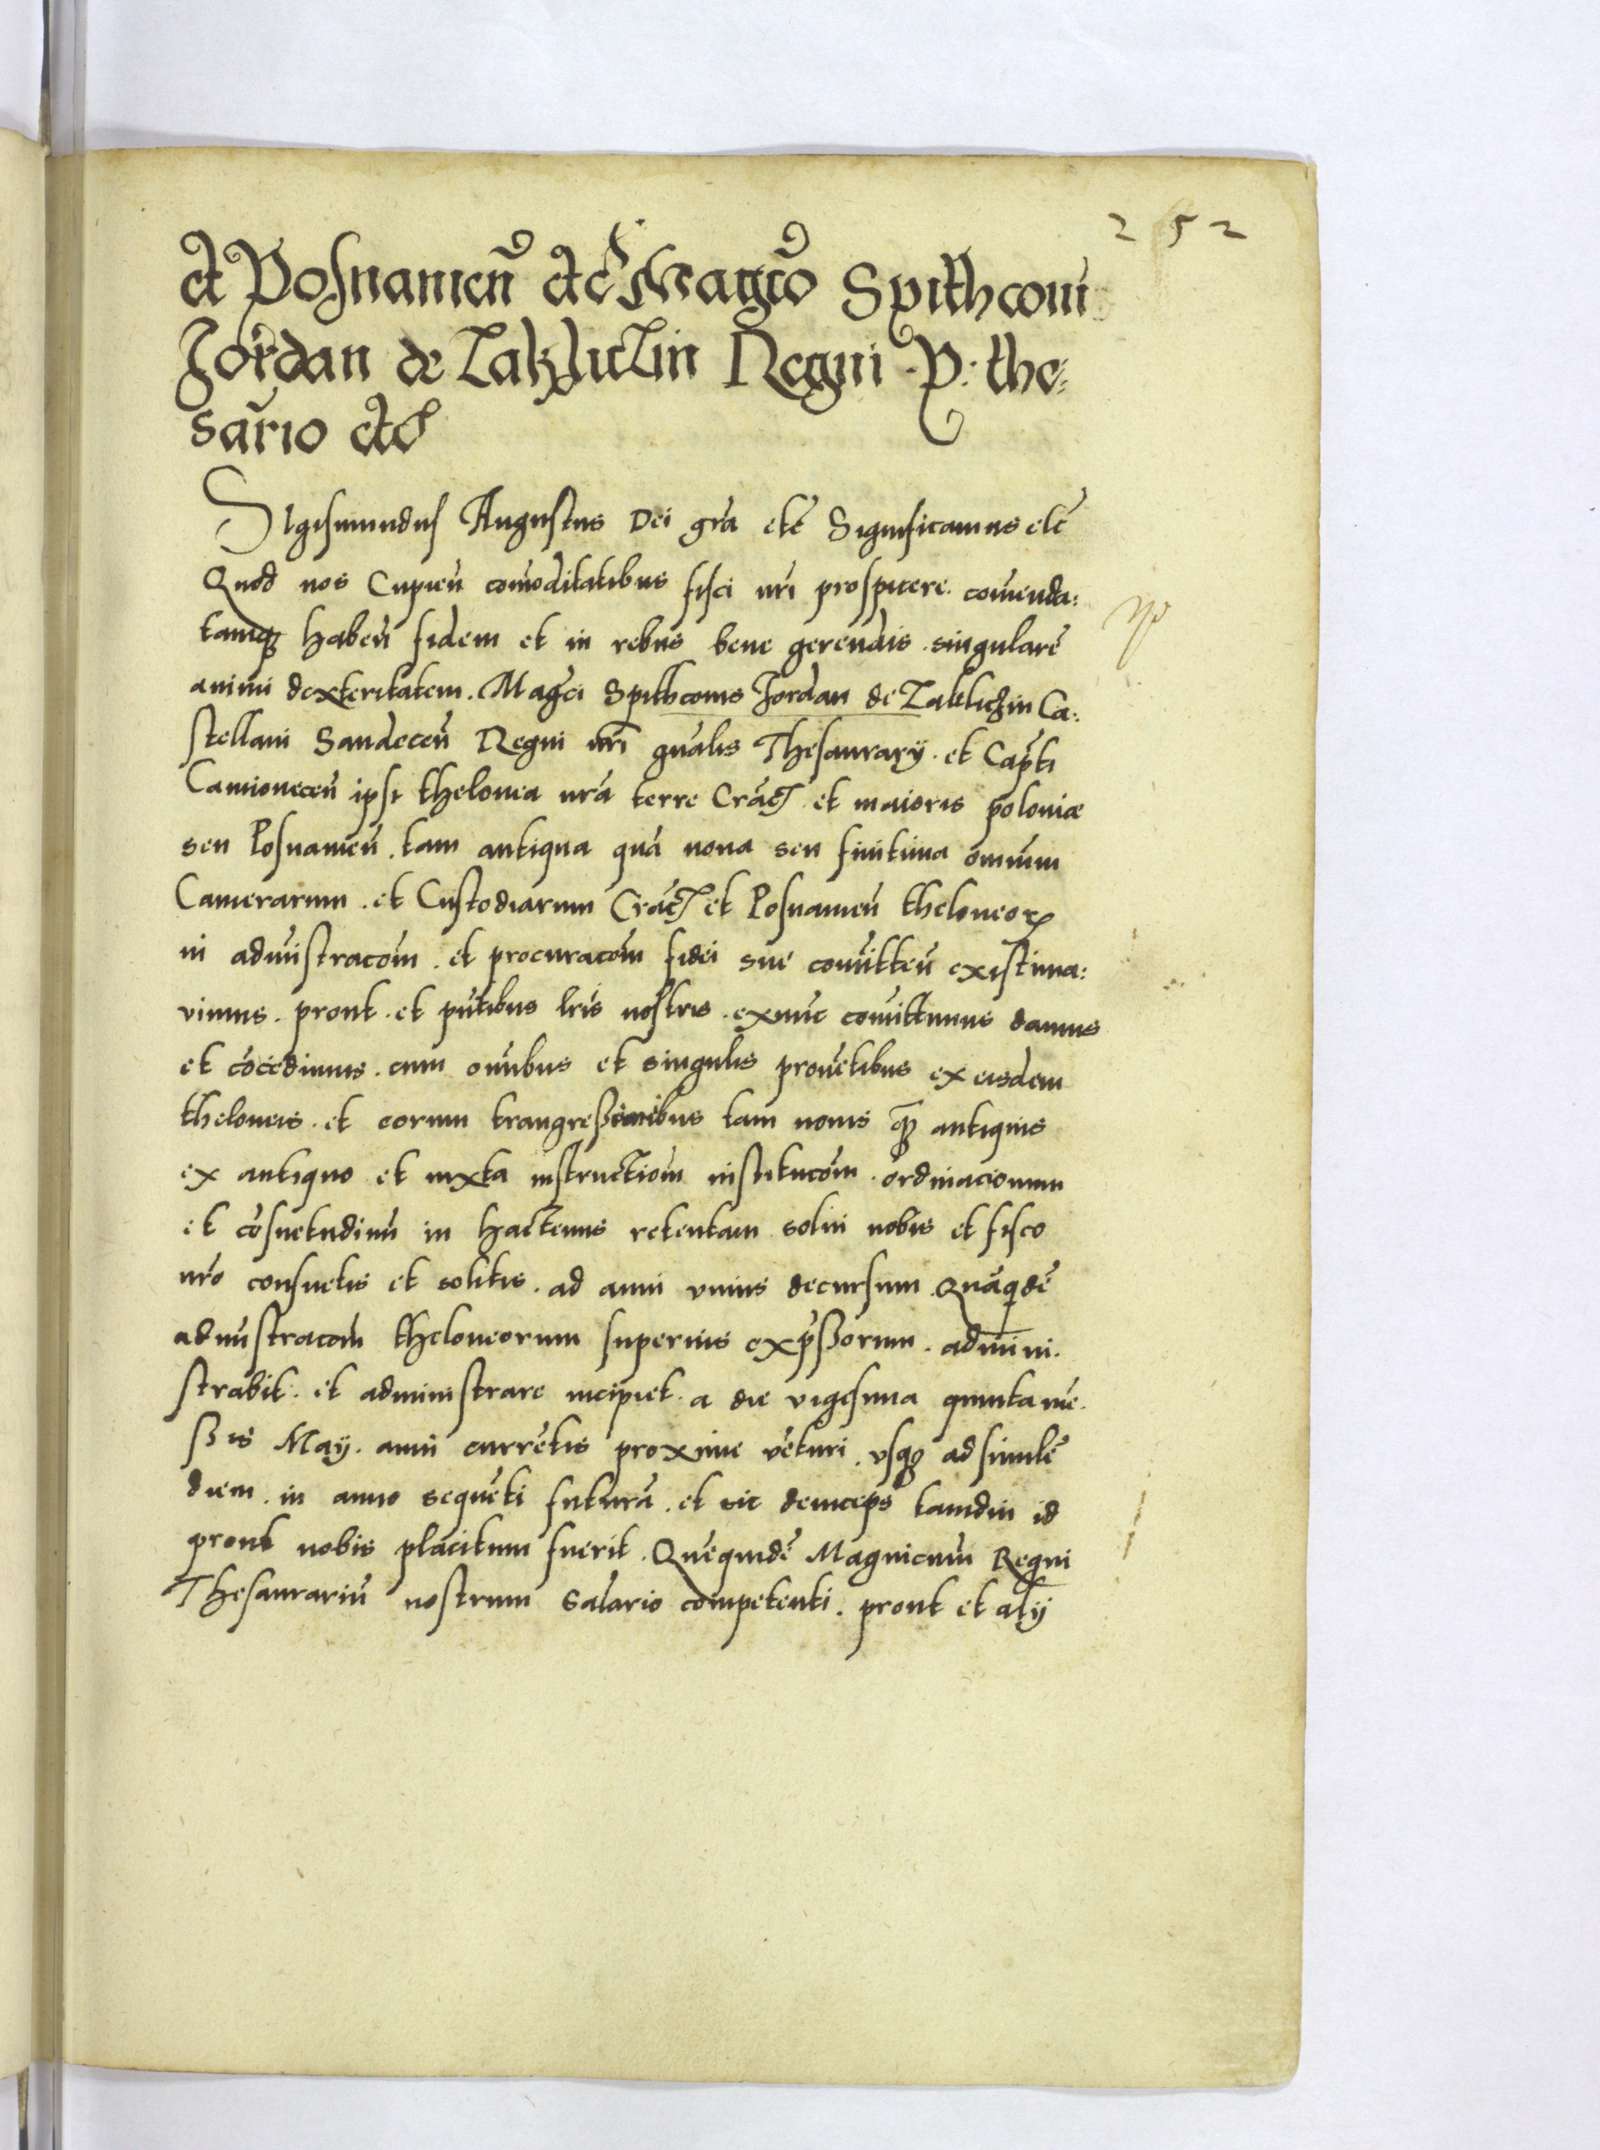 252
et Posnanien̄ etc̄ Magc̄o Spithconi
Jordan de Zakluczin Regni P: the⸗
saūrio etc̄
Sigismundus Augustus Dei gr̄a etc̄ Significamus etc̄
Quod nos Cupien̄ com̄oditatibus fisci nr̄i prospicere com̄enda:
tamq₃ haben̄ fidem et in rebus bene gerendis singularē
animi dexteritatem. Magc̄i Spithconis Jordan de Zaklichin Ca:
stellani Sandecen̄ Regni nr̄i gn̄alis Thesaurarij. et Capt̄i
Camionecen̄ ipsi thelonea nr̄a terre Crac̄ et maioris poloniæ
seu Posnanien̄. tam antiqua quā noua seu finitima om̄ium
Camerarum. et Custodiarum Crac̄ et Posnanien̄ theloneoꝝ
in adm̄istracōm. et procuracōm fidei sue com̄itten̄ existima:
vimus. prout. et pn̄tibus lr̄is nostris. exnūc com̄ittimus damus
et cōcedimus. cum om̄ibus et singulis prouētibus ex eisdem
theloneis. et eorum trangreßionibus tam nouis q̄₃ antiquis
ex antiquo et iuxta instructiom̄ institucōm. ordinacionum
et cōsuetudinū in hactenus retentam solui nobis et fisco
nr̄o consuetis et solitis. ad anni vnius decursum. Quāq̄dē
adm̄istracōm theloneorum superius exp̄ßorum. admini.
strabit. et administrare incipiet. a die vigesima quinta mē.
ßis Maij. anni currētis proxime vēturi. vsq₃ ad similē
diem. in anno sequēti futurā. et sic deinceps tamdiu id
prout nobis placitum fuerit. Quēquidē Magnicum̄ Regni
Thesaurariū nostrum Salario competenti. prout et alij